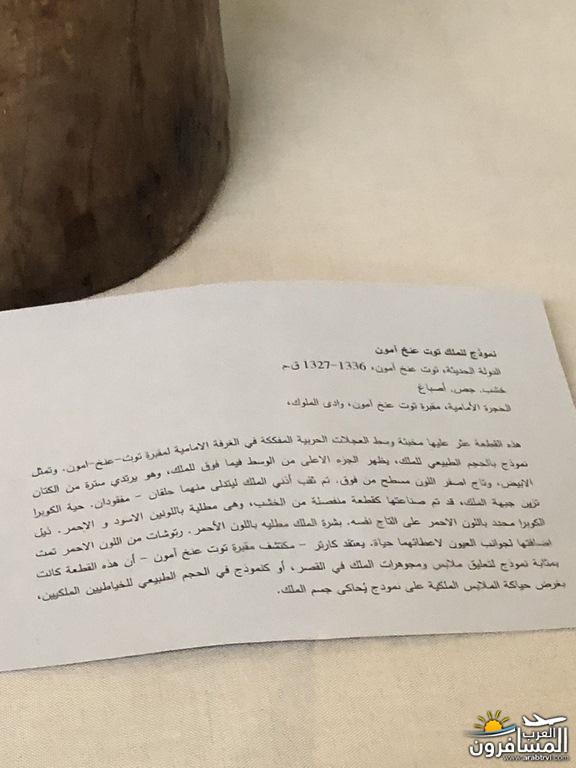 نموذج للملك توت عنخ آمون
الدولة الحديثة، توت عنخ آمون، 1336–1327 ق.م
خشب. جص. أصباغ
الحجرة الأمامية، مقبرة توت عنخ آمون، وادى الملوك،
هذه القطعة عثر عليها مخبئة وسط العجلات الحربية المفككة في الغرفة الامامية لمقبرة توت-عنخ-امون. وتمثل
نموذج بالحجم الطبيعي للملك، يظهر الجزء الاعلى من الوسط فيما فوق للملك، وهو يرتدي سترة من الكتان
الابيض، وتاج اصفر اللون مسطح من فوق. تم ثقب أذني الملك ليتدلى منهما حلقان – مفقودان. حية الكوبرا
تزين جبهة الملك، قد تم صناعتها كقطعة منفصلة من الخشب، وهى مطلية باللونين الاسود و الاحمر. ذيل
الكوبرا محدد باللون الاحمر على التاج نفسه. بشرة الملك مطليه باللون الأحمر. ورتوشات من اللون الاحمر تمت
اضافتها لجوانب العيون لاعطائهما حياة. يعتقد كارتر – مكتشف مقبرة توت عنخ آمون – أن هذه القطعة كانت
بمثابة نموذج لتعليق ملابس ومجوهرات الملك في القصر، أو كنموذج في الحجم الطبيعي للخياطيين الملكيين،
بغرض حياكة الملابس الملكية على نموذج يُحاكى جسم الملك.
العرب
المسافرون
www.arabtrvl.com